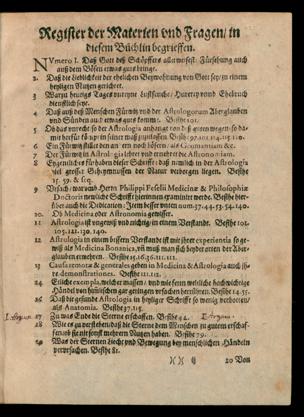 Register der Materien vnd Fragen/ in
diesem Büchlin begrieffen.
NVmero 1. Daß Gott deß Schöpffers allerweisest Fürsehung auch
auß dem Bösen etwas guts bringe.
2. Daß die Lieblichkeit der ehelichen Beywohnung von Gott sey/ zu einem
heyligen Nutzen gerichtet.
3 Warzu heutigs Tages vnreyne Lustseuche/ Hurerey vnd Ehebruch
dienstlich seye.
4 Daß auß deß Menschen Fürwitz vnd der Astrologorum Aberglauben
vnd Sünden auch etwas guts komme. Besihe
5 Ob das vnrecht so der Astrologia anhangt von deß guten wegen/ so da-
mit 97.101.114.115.140.
6 Ein Fürwitz stillet den andern noch bösern/ als Geomantiam &c.
7 Der Fürwitz in Astrologia lehret vnd ernehret die Astronomiam.
8 Eygentliches fürhaben dieser Schrifft: daß nemlich in der Astrologia
viel grosser Geheymnussen der Natur verborgen liegen. Besihe
15. 59. & seq.
9 Vrsach/ warumb Herrn Philippi Feselii Medicinæ & Philosophiæ
Doctoris newliche Schrifft hierinnen examinirt werde. Besihe hier-
uber auch die Dedication: Item besser vnten num. 37.44.53.54.140.
10 Ob Medicina oder Astronomia gewisser.
11 Astrologia ist vngewiß vnd nichtig/ in einem Verstandt. Besihe 101.
103. 121. 130. 140.
12 Astrologia in einem bessern Verstandt ist mit ihrer experientia so ge-
wiß als Medicina Botanica, vnd muß man sich beyder orten der Aber-
glauben erwehren. Besihe 15.16.36.111.113.
13 Causæ remotæ & generales geben in Medicina & Astrologia auch ih-
re demonstrationes. Besihe 111.113.
14 Etliche exempla, welcher massen/ vnd wie ferrn weitliche hochwichtige
Händel von himlischen gar geringen vrsachen herrühren. Besihe
16 Daß die gesunde Astrologia in heyliger Schrifft so wenig verboten/
als Anatomia. Besihe 37. 115.
17 Zu was Ende die Sterne erschaffen. Besihe 42.
18 Wie es zu verstehen/ daß die Sterne dem Menschen zu gutem erschaf-
fen/ ob sie nit sonst mehrern Nutzen haben. Besihe 79.
19 Was der Sternen Liecht vnd Bewegung bey menschlichen Händeln
verursachen. Besihe 81.
)( )( ij 20 Von